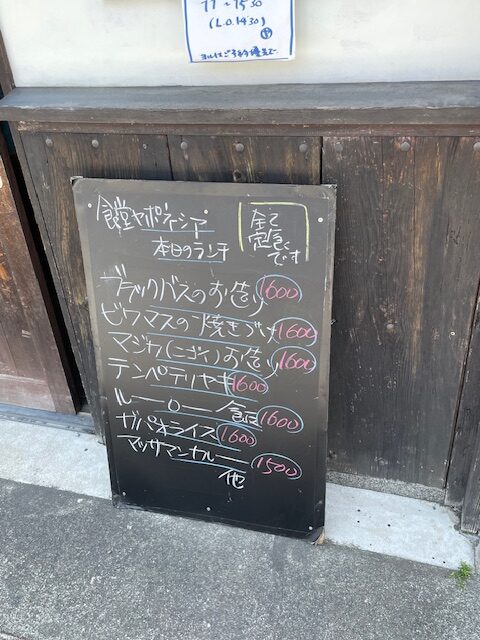 11~15:30
(L.O.14:30)
食堂ヤポネシア
本日のランチ
全て
定食
です
ブラックバスのお造り 1600
ビワマスの焼きづけ 1600
マジカ(ニゴイ)お造り 1600
テンペテリヤキ 1600
ルーロー飯 1600
ガパオライス 1600
マッサマンカレー 1500
他